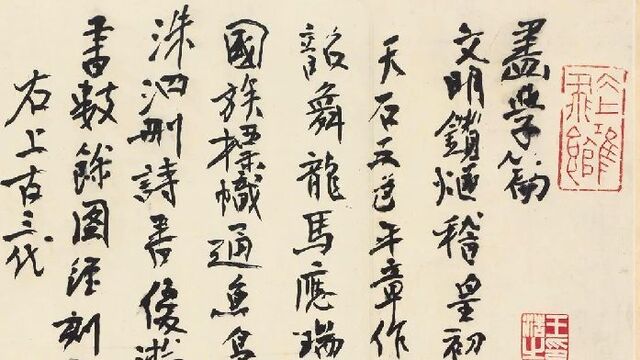 畫學篇
文明燧稽皇初
天石五色平章作
韶舞龍馬應瑞
國族標幟通魚
洙泗刪詩書優
書數餘圖經刻
右上古三代